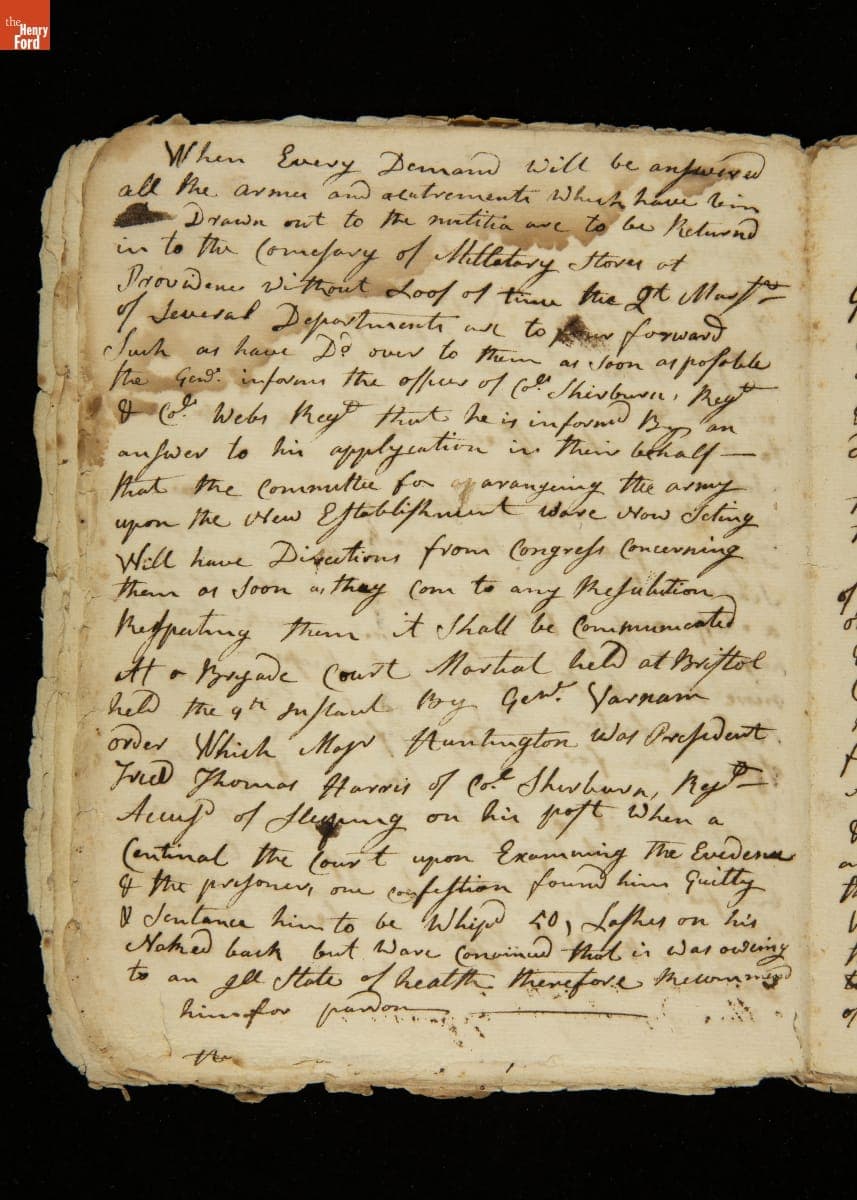 the
Henry
Ford
When Every Demand will be answered
all the armes and acutrements which have bin
Drawn out to the militia are to be Returnd
in to the Comesary of Milletary Stores at
Providence without Loss of time the Qt Mastrs
of Several Departments are to forward
Such as have Dd over to them as soon as posable
the Genl. informs the officers of Col. Shirburns, Regt
& Col. Webs Regt that he is informd By an
answer to his applycation in their behalf —
that the Committee for arangeing the army
upon the New Establishment ware Now Seting
Will have Directions from Congress Concerning
them as soon as they com to any Resulution
Respecting them it Shall be Communicated
At a Brigade Court Martial held at Bristol
held the 9th Instant By Genl. Varnam
order Which Majr Huntington was President
Tried Thomas Harris of Col. Sherburn, Regt —
Accusd of Sleeping on his post when a
Centinal the Court upon Examining the Evedence
& the prisoners, one confestion found him Guilty
& Sentance him to be Whipd 50, Lashes on his
Naked back but ware convinced that is was oweing
to an Ill State of health therefore Recommend
him for pardon —
the